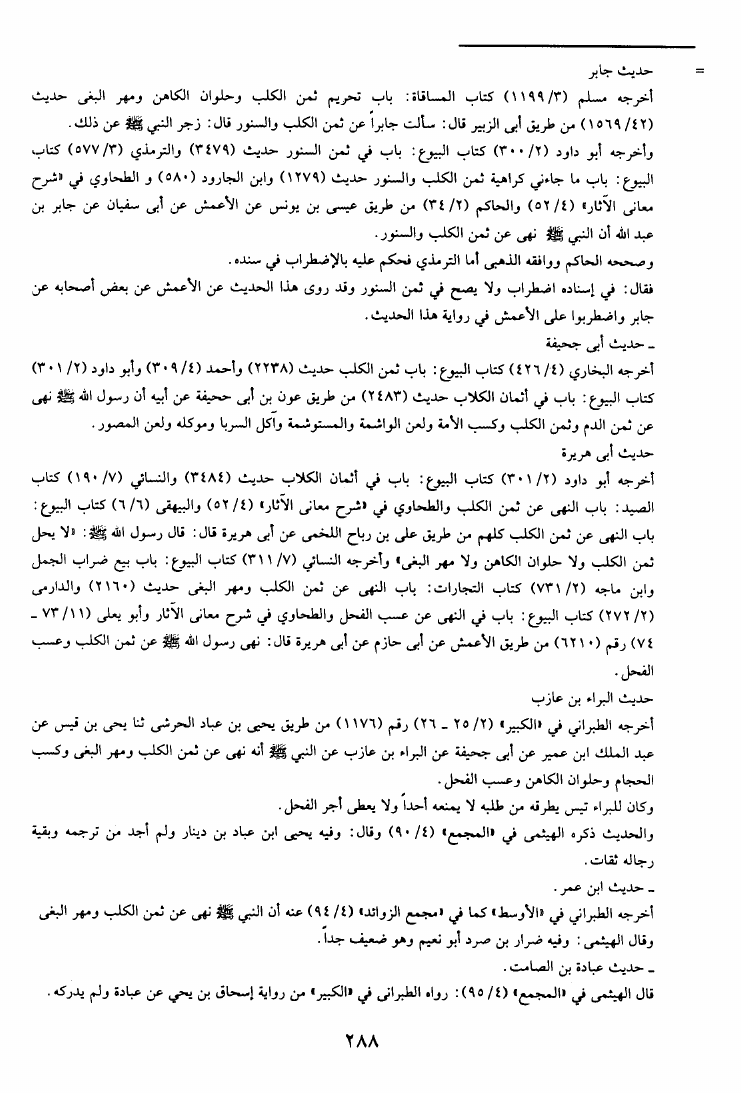 = حديث جابر
أخرجه مسلم (٣/ ١١٩٩) كتاب المساقاة: باب تحريم ثمن الكلب وحلوان الكاهن ومهر البغى حديث
(٤٢/ ١٥٦٩) من طريق أبى الزبير قال: سألت جابراً عن ثمن الكلب والسنور قال: زجر النبي ﷺ عن ذلك.
وأخرجه أبو داود (٢/ ٣٠٠) كتاب البيوع: باب في ثمن السنور حديث (٣٤٧٩) والترمذي (٣/ ٥٧٧) كتاب
البيوع: باب ما جاءني كراهية ثمن الكلب والسنور حديث (١٢٧٩) وابن الجارود (٥٨٠) و الطحاوي في «شرح
معانى الآثار» (٤/ ٥٢) والحاكم (٢/ ٣٤) من طريق عيسى بن يونس عن الأعمش عن أبى سفيان عن جابر بن
عبد الله أن النبي ﷺ نهى عن ثمن الكلب والسنور.
وصححه الحاكم ووافقه الذهبى أما الترمذي فحكم عليه بالإضطراب في سنده.
فقال: في إسناده اضطراب ولا يصح في ثمن السنور وقد روى هذا الحديث عن الأعمش عن بعض أصحابه عن
جابر واضطربوا على الأعمش في رواية هذا الحديث.
ـ حديث أبى جحيفة
أخرجه البخاري (٤/ ٤٢٦) كتاب البيوع: باب ثمن الكلب حديث (٢٢٣٨) وأحمد (٤/ ٣٠٩) وأبو داود (٢/ ٣٠١)
كتاب البيوع: باب في أثمان الكلاب حديث (٢٤٨٣) من طريق عون بن أبى حجيفة عن أبيه أن رسول الله ﷺ نهى
عن ثمن الدم وثمن الكلب وكسب الأمة ولعن الواشمة والمستوشمة وآكل السربا وموكله ولعن المصور.
حديث أبى هريرة
أخرجه أبو داود (٢/ ٣٠١) كتاب البيوع: باب في أثمان الكلاب حديث (٣٤٨٤) والنسائي (٧/ ١٩٠) كتاب
الصيد: باب النهى عن ثمن الكلب والطحاوي في «شرح معانى الآثار» (٤/ ٥٢) والبيهقى (٦/ ٦) كتاب البيوع:
باب النهى عن ثمن الكلب كلهم من طريق على بن رباح اللخمى عن أبى هريرة قال: قال رسول الله ﷺ: «لا يحل
ثمن الكلب ولا حلوان الكاهن ولا مهر البغى» وأخرجه النسائي (٧/ ٣١١) كتاب البيوع: باب بيع ضراب الجمل
وابن ماجه (٢/ ٧٣١) كتاب التجارات: باب النهى عن ثمن الكلب ومهر البغى حديث (٢١٦٠) والدارمى
(٢/ ٢٧٢) كتاب البيوع: باب في النهى عن عسب الفحل والطحاوي في شرح معانى الآثار وأبو يعلى (١١/ ٧٣ ـ
٧٤) رقم (٦٢١٠) من طريق الأعمش عن أبى حازم عن أبى هريرة قال: نهى رسول الله ﷺ عن ثمن الكلب وعسب
الفحل.
حديث البراء بن عازب
أخرجه الطبراني في «الكبير» (٢/ ٢٥ ـ ٢٦) رقم (١١٧٦) من طريق يحيى بن عباد الحرشى ثنا يحى بن قيس عن
عبد الملك ابن عمير عن أبى جحيفة عن البراء بن عازب عن النبي ﷺ أنه نهى عن ثمن الكلب ومهر البغى وكسب
الحجام وحلوان الكاهن وعسب الفحل.
وكان للبراء تيس يطرقه من طلبه لا يمنعه أحداً ولا يعطى أجر الفحل.
والحديث ذكره الهيثمى في «المجمع» (٤/ ٩٠) وقال: وفيه يحيى ابن عباد بن دينار ولم أجد من ترجمه وبقية
رجاله ثقات.
ـ حديث ابن عمر.
أخرجه الطبراني في «الأوسط» كما في «مجمع الزوائد» (٤/ ٩٤) عنه أن النبي ﷺ نهى عن ثمن الكلب ومهر البغى
وقال الهيثمى: وفيه ضرار بن صرد أبو نعيم وهو ضعيف جداً.
ـ حديث عبادة بن الصامت.
قال الهيثمى في «المجمع» (٤/ ٩٥): رواه الطبرانى في «الكبير» من رواية إسحاق بن يحي عن عبادة ولم يدركه.
٢٨٨